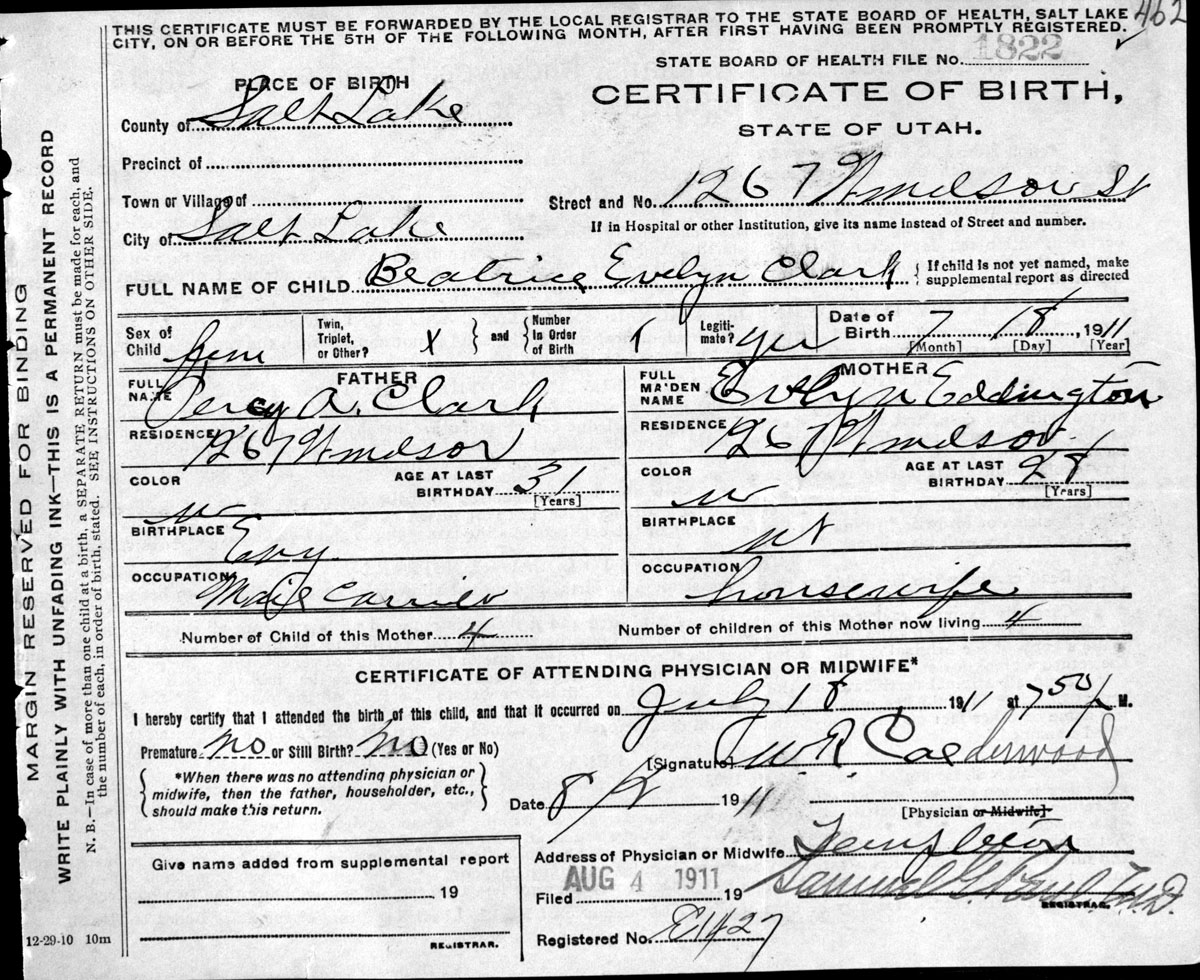 462
THIS CERTIFICATE MUST BE FORWARDED BY THE LOCAL REGISTRAR TO THE STATE BOARD OF HEALTH, SALT LAKE
CITY, ON OR BEFORE THE 5TH OF THE FOLLOWING MONTH, AFTER FIRST HAVING BEEN PROMPTLY REGISTERED.
STATE BOARD OF HEALTH FILE No. 1822
PLACE OF BIRTH
CERTIFICATE OF BIRTH,
STATE OF UTAH.
County of Salt Lake
Precinct of
Town or Village of
Street and No. 1267 Windsor St
City of Salt Lake
If in Hospital or other Institution, give its name instead of Street and number.
FULL NAME OF CHILD Beatrice Evelyn Clark { If child is not yet named, make
supplemental report as directed
Sex of Child fem
Twin, Triplet, or Other? X } and { Number in Order of Birth 1
Legiti-mate? yes
Date of Birth 7 18, 1911
[Month] [Day] [Year]
FATHER
FULL NAME Percy A. Clark
RESIDENCE 1267 Windsor
COLOR w
AGE AT LAST BIRTHDAY 31
[Years]
BIRTHPLACE Eng
OCCUPATION Mail Carrier
MOTHER
FULL MAIDEN NAME Evelyn Eddington
RESIDENCE 1267 Windsor
COLOR w
AGE AT LAST BIRTHDAY 28
[Years]
BIRTHPLACE Ut
OCCUPATION housewife
Number of Child of this Mother 4
Number of children of this Mother now living 4
CERTIFICATE OF ATTENDING PHYSICIAN OR MIDWIFE*
I hereby certify that I attended the birth of this child, and that it occurred on July 18 1911 at 7 50 P M.
Premature no or Still Birth? no (Yes or No)
[Signature] W. R. Calderwood
*When there was no attending physician or
midwife, then the father, householder, etc.,
should make this return.
Date 8/2 1911
[Physician or Midwife]
Give name added from supplemental report
19
REGISTRAR.
Address of Physician or Midwife Templeton
Filed AUG 4 1911 19
Samuel G. M.D.
REGISTRAR.
Registered No. E1427
12-29-10 10m
MARGIN RESERVED FOR BINDING
WRITE PLAINLY WITH UNFADING INK—THIS IS A PERMANENT RECORD
N. B.—In case of more than one child at a birth, a SEPARATE RETURN must be made for each, and
the number of each, in order of birth, stated. SEE INSTRUCTIONS ON OTHER SIDE.